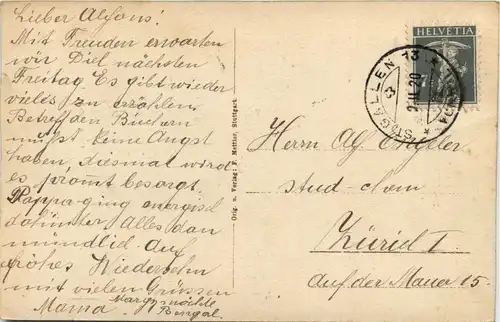 Lieber Alfons!
Mit Freuden erwarten
wir Dich nächsten
Freitag. Es gibt wieder
vieles zu erzählen.
Betreff den Büchern
mußt keine Angst
haben, diesmal wird
es prompt besorgt.
Pappa ging energisch
dahinter. Alles dan
mündlich. Auf
frohes Wiedersehn
mit vielen Grüssen
Mama
Orig. u. Verlag: F. Mettler, Stuttgart.
HELVETIA
ST. GALLEN 13
2.II.20
Herrn Alf.
stud. chem
Zürich I
Auf der Mauer 15.